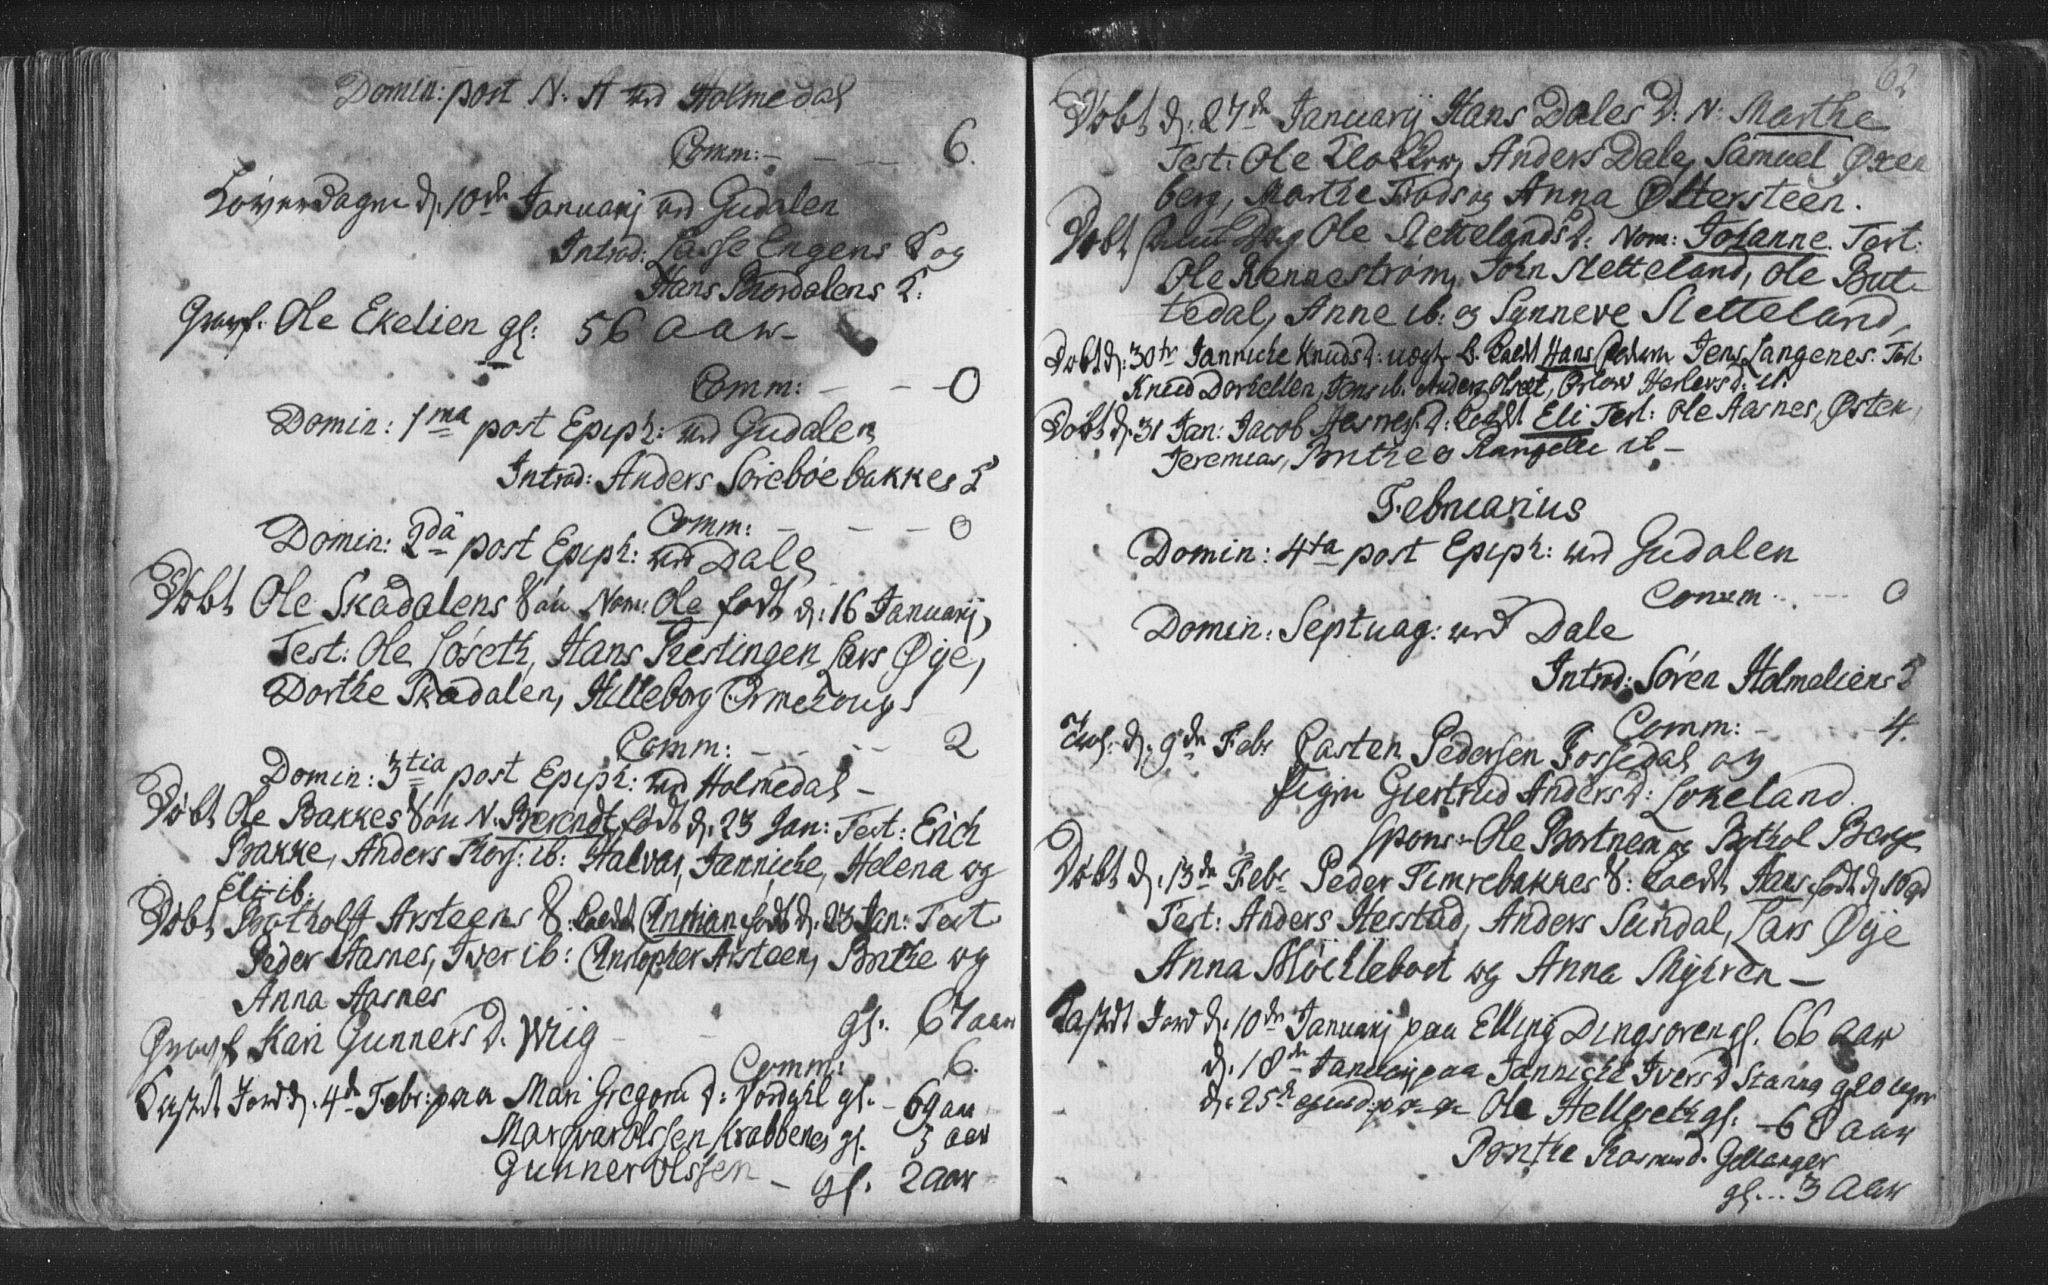 Domin: post N. A ved Holmedal
Comm: - - - 6.
Løverdagen d. 10de Januarij ved Gudalen
Introd: Lasse Engens K og
Hans Bordalens K:
Graf. Ole Ekelien gl: 56 aar
Comm: - - - 0
Domin: 1ma post Epiph: ved Gudalen
Introd: Anders Sørebøe bakkes K
Comm: - - - 0
Domin: 2da post Epiph: ved Dale
Døbt Ole Skadalens Søn Nom: Ole født d: 16 Januarij,
Test: Ole Løseth, Hans Prestingen Lars Øye,
Dorthe Skadalen, Hilleborg Ormehoug
Comm: - - - 2
Domin: 3tia post Epiph: ved Holmedal
Døbt Ole Bakkes Søn N. Berendt født d. 23 Jan: Test: Erich
Bakke, Anders ib: Halvar, Jannicke, Helena og
Eli ib.
Døbt Botholff Arsteens S: kaldt Christian født d. 23 Jan: Test
Peder Aasnes, Iver ib: Christopher Arsteen, Brithe og
Anna Aasnes
Graf Kari Gunners d. Wiig - gl. 67 aar
Comm: 6.
Kastet Jord d. 4de Febr: paa Mari Gregori d: gl. 69 aar
Olssen Krabbenes gl. 3 aar
Gunner Olssen - gl. 2 aar
62
Døbt d. 27de Januarij Hans Dales D: N: Marthe
Test: Ole Klokker, Anders Dale, Samuel Øren
berg, Marthe og Anna Øttersteen.
Døbt samme Dag Ole Slettelands D: Nom: Johanne. Test:
Ole Rennestrøm, John Sletteland, Ole But-
tedal, Anne ib: og Synneve Sletteland,
Døbt d: 30te Jannicke Knuds d: uægte b. kaldt Hans Jens Langenes. Test:
Knud Dorhellen, Jens ib. Anders ib.
Døbt d. 31 Jan: Jacob Aasnes D: kaldt Eli Test: Ole Aasnes, Østen,
Jeremias, Brithe og ib -
Februarius
Domin: 4ta post Epiph: ved Gudalen
Comm - - - 0
Domin: Septuag: ved Dale
Introd: Søren Holmeliens K
Comm: - - - 4.
d. 9de Febr Casten Pedersen Fossedal og
Pigen Giertrud Anders D: Lokeland.
Spons: Ole Bortnen og Bothol Berge
Døbt d. 13de Febr Peder Timrebakkes S: kaldt Hans født d. 10
Test: Anders Herstad, Anders Sundal, Lars Øye
Anna og Anna Myhren -
Kastet Jord d. 10de Januarij paa Elling Dingsøren gl. 66 aar
d. 18de Januarij paa Jannicke Ivers d Stanna gl 10 uger
d. 25de ejusd: paa Ole Hellesett gl. - 68 aar
Brithe Rasmus d. Gellanger
gl. .. 3 aar